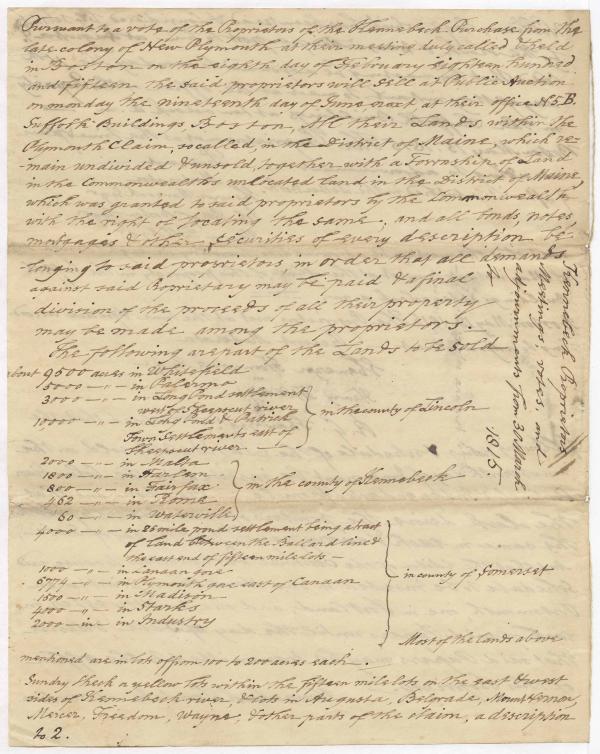 Pursuant to a vote of the Proprietors of the Kennebeck Purchase from the
late colony of New Plymouth at their meeting duly called & held
in Boston on the eighth day of February eighteen hundred
and fifteen the said proprietors will sell at Public Auction
on monday the nineteenth day of June next at their office N 5. B.
Suffolk Buildings Boston, All their Lands within the
Plymouth Claim, so called, in the District of Maine, which re-
-main undivided & unsold, together with a Township of Land
in the Commonwealths unlocated land in the District of Maine,
which was granted to said proprietors by the Commonwealth
with the right of locating the same; and all bonds, notes,
mortgages & other securities of every description be-
longing to said proprietors, in order that all demands
against said Propriety may be paid & a final
division of the proceeds of all their property
may be made among the proprietors.
The following are part of the Lands to be sold
about 9500 acres in Whitefield
5000 — " — in Palermo
3000 — " — in Long Pond settlement
west of Sheepscut river
10000 — " — in Long Pond & Patrick
Town Settlements east of
Sheepscut river —
in the county of Lincoln
2000 — " — in Malta
1800 — " — in Harlem
800 — " — in Fairfax
462 — " — in Rome
60 — " — in Waterville
in the county of Kennebeck
4000 — " — in 25 mile pond settlement being a tract
of land between the Ballard line &
the east end of fifteen mile lots —
1000 — " — in Canaan gore
6774 — " — in Plymouth gore east of Canaan
1500 — " — in Madison
4000 — " — in Starks
2000 — in — in Industry
in county of Somerset
Most of the lands above
mentioned are in lots of from 100 to 200 acres each.
Sundry check & yellow lots within the fifteen mile lots on the east & west
sides of Kennebeck river, & lots in Augusta, Belgrade, Mount Vernon,
Mercer, Freedom, Wayne, & other parts of the claim, a description
to 2.
Kennebeck Proprietors
Meetings, votes, and
adjournments from 30 March
to
1815